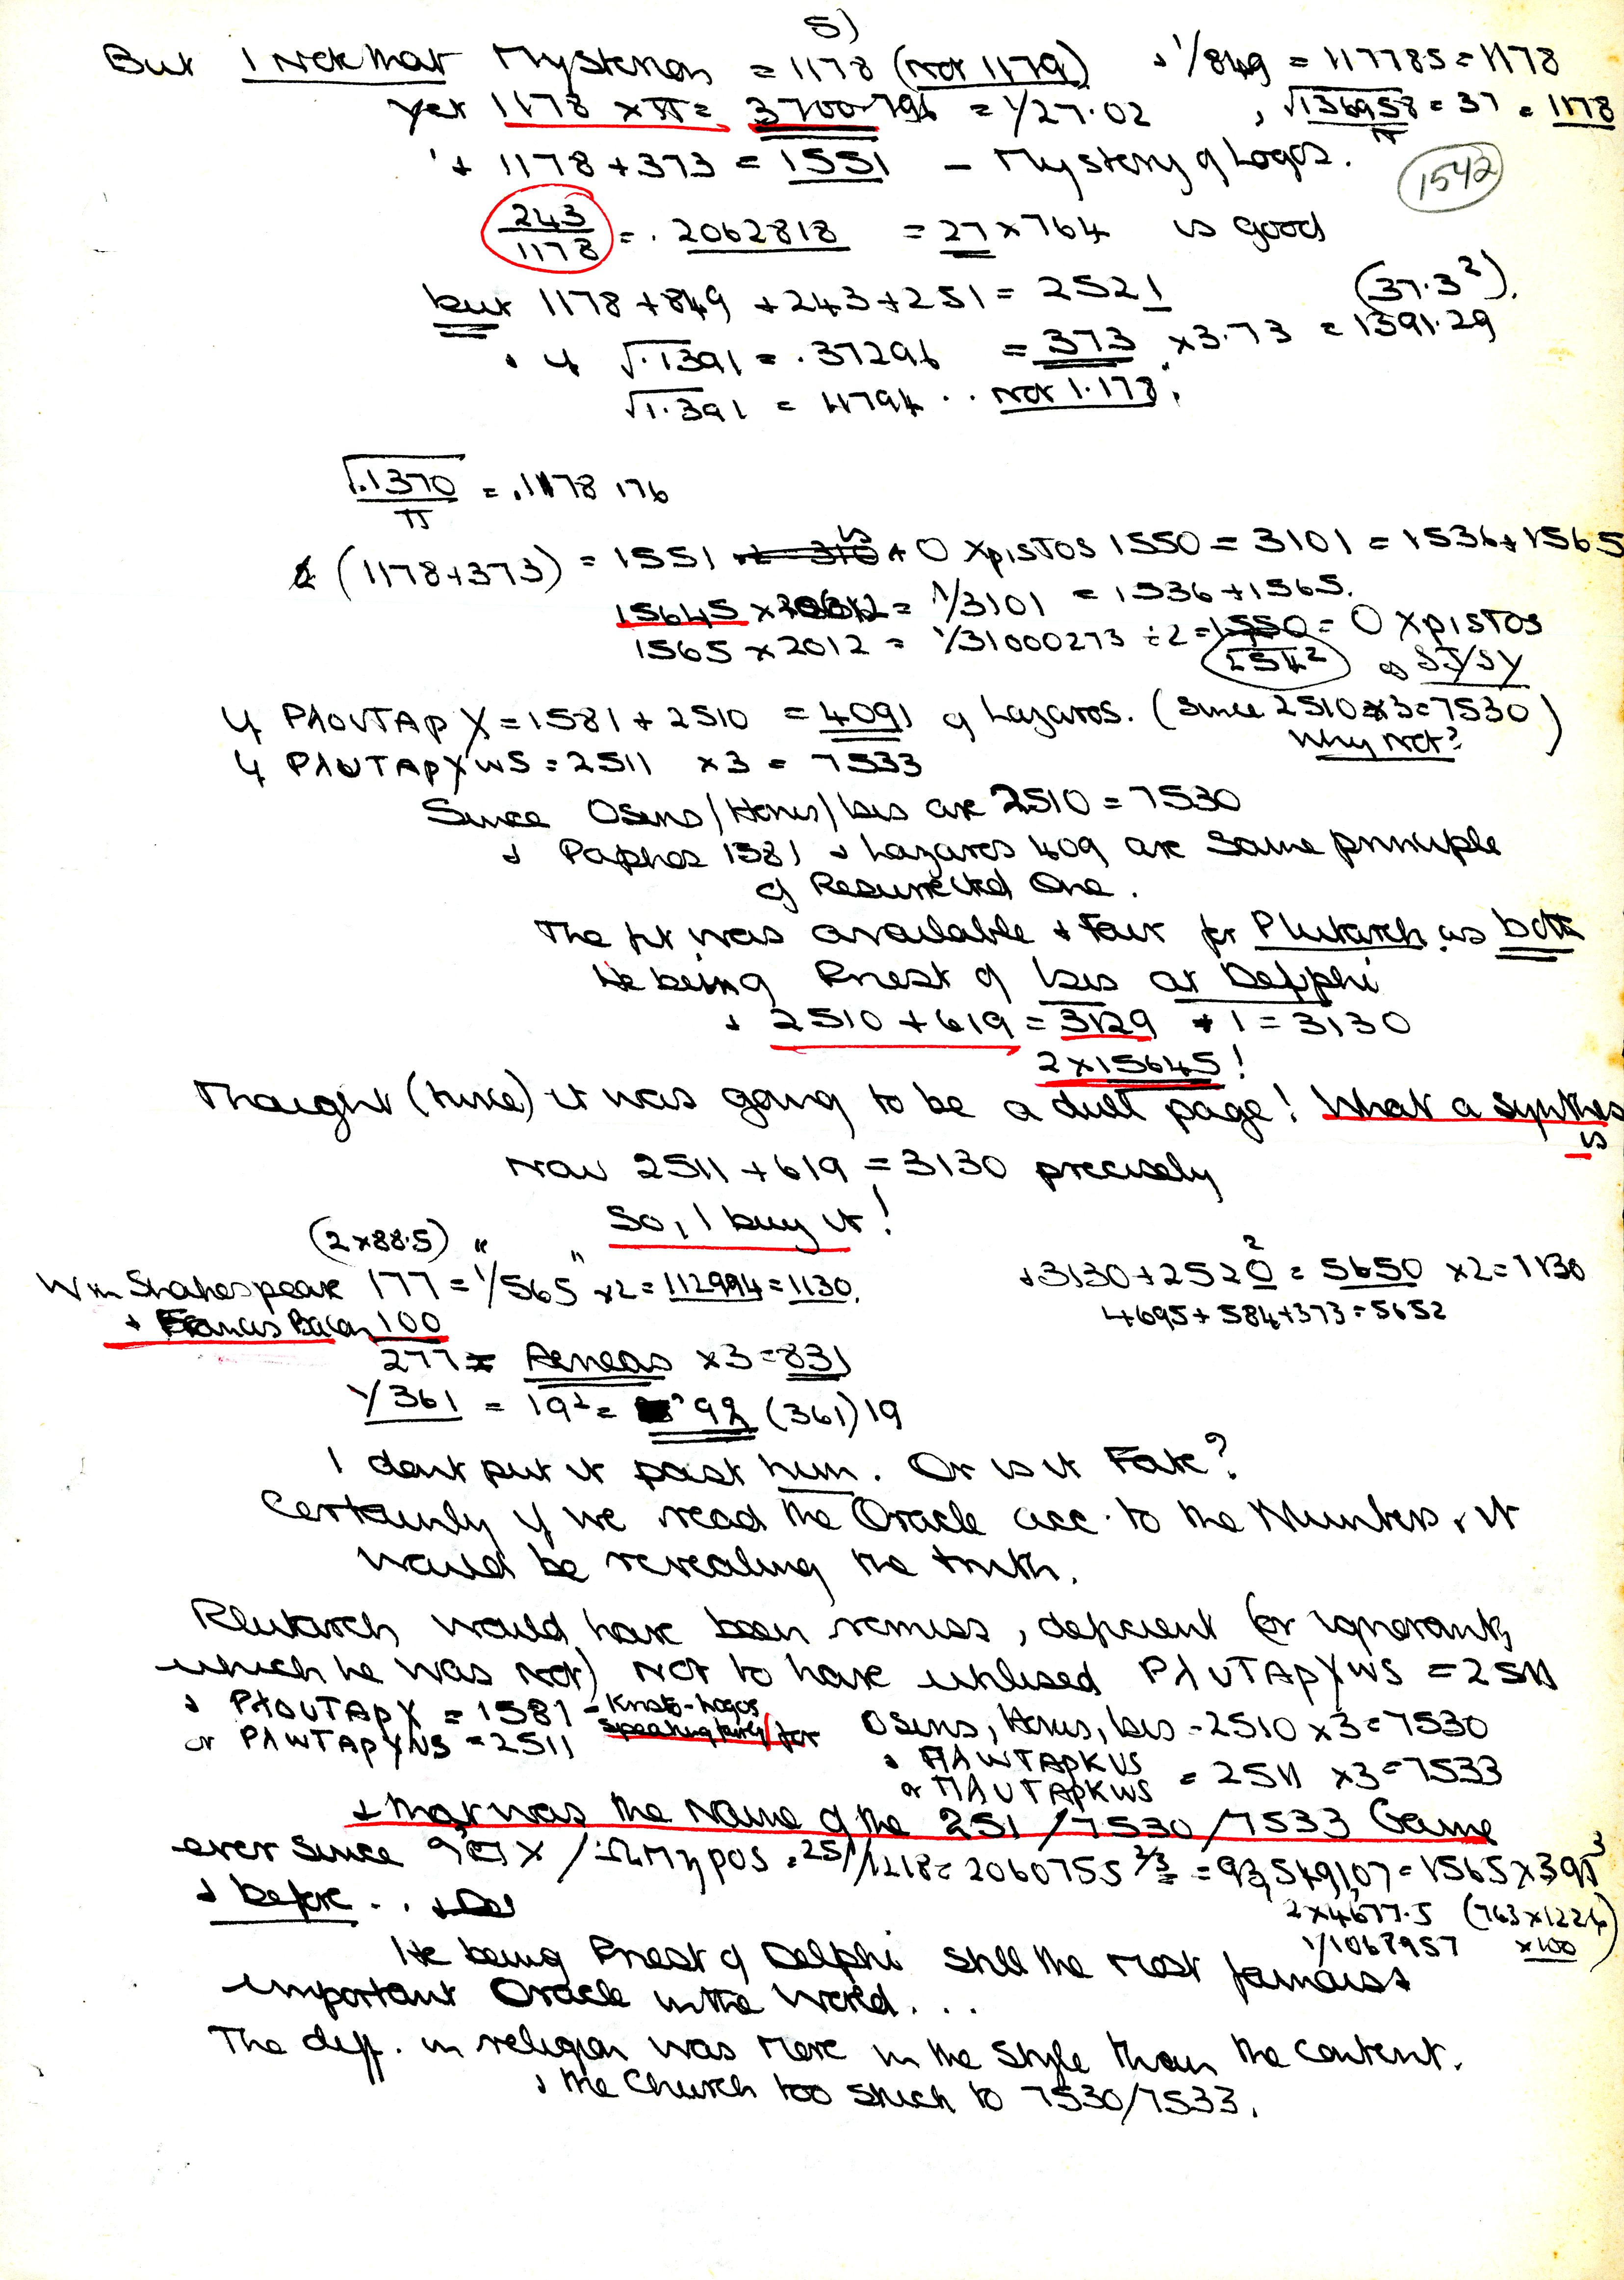 5)
But I note that Mysterion = 1178 (not 1179) + 1/849 = 117785 = 1178
Yet 1178 x π = 3700.796 = 1/27.02 , √136958/π = 37 = 1178
+ 1178 + 373 = 1551 - Mystery of Logos.
1542
243/1178 = .2062818 = 27 x 764 is good
but 1178 + 849 + 243 + 251 = 2521 (37.3²).
√.1391 = .37296 = 373 x 3.73 = 1391.29
√1.391 = 11794 .. not 1.178.
√.1370/π = .1178 176
(1178+373) = 1551 + O XpISTOS 1550 = 3101 = 1536 + 1565
15645 x = 1/3101 = 1536 + 1565.
1565 x 2012 = 1/31000273 ÷ 2 = 1550 = O XpISTOS
PλOUTApX = 1581 + 2510 = 4091 of Lazaros. (Since 2510 x 3 = 7530)
Why not?
PλUTApXWS = 2511 x 3 = 7533
Since Osiris/Horus/Isis are 2510 = 7530
+ Paphos 1581 + Lazaros 409 are same principle
of Resurrected One.
The fit was available + fair for Plutarch as both
He being Priest of Isis at Delphi
+ 2510 + 619 = 3129 + 1 = 3130
2 x 15645!
Thought (twice) it was going to be a dull page! What a synthesis
Now 2511 + 619 = 3130 precisely
So, I buy it!
(2 x 88.5) " "
Wm Shakespeare 177 = 1/565 x 2 = 112994 = 1130.
+ 3130 + 2520 = 5650 x 2 = 1130
+ Francis Bacon 100
4695 + 584 + 373 = 5652
277 = Aeneas x 3 = 831
1/361 = 19² = (361) 19
I dont put it past him. Or is it Fate?
Certainly if we read the Oracle acc. to the Numbers, it
would be revealing the truth.
Plutarch would have been remiss, deficient (or ignorant,
which he was not) not to have utilised PλUTApXWS = 2511
+ PλOUTApX = 1581 - Logos
or PλWTApXUS = 2511 for Osiris, Horus, Isis - 2510 x 3 = 7530
+ ΠλWTApKUS
or ΠλUTApKWS = 2511 x 3 = 7533
+ that was the Name of the 251/7530/7533 Game
ever since = 2060755 2/3 = 93,549,107 = 1565 x 391³
+ before . .
2 x 4677.5 (763 x 1226)
1/1068957 x 100
He being Priest of Delphi still the most famous +
important Oracle in the World. . .
The diff. in religion was more in the style than the content.
+ the Church too stuck to 7530/7533.